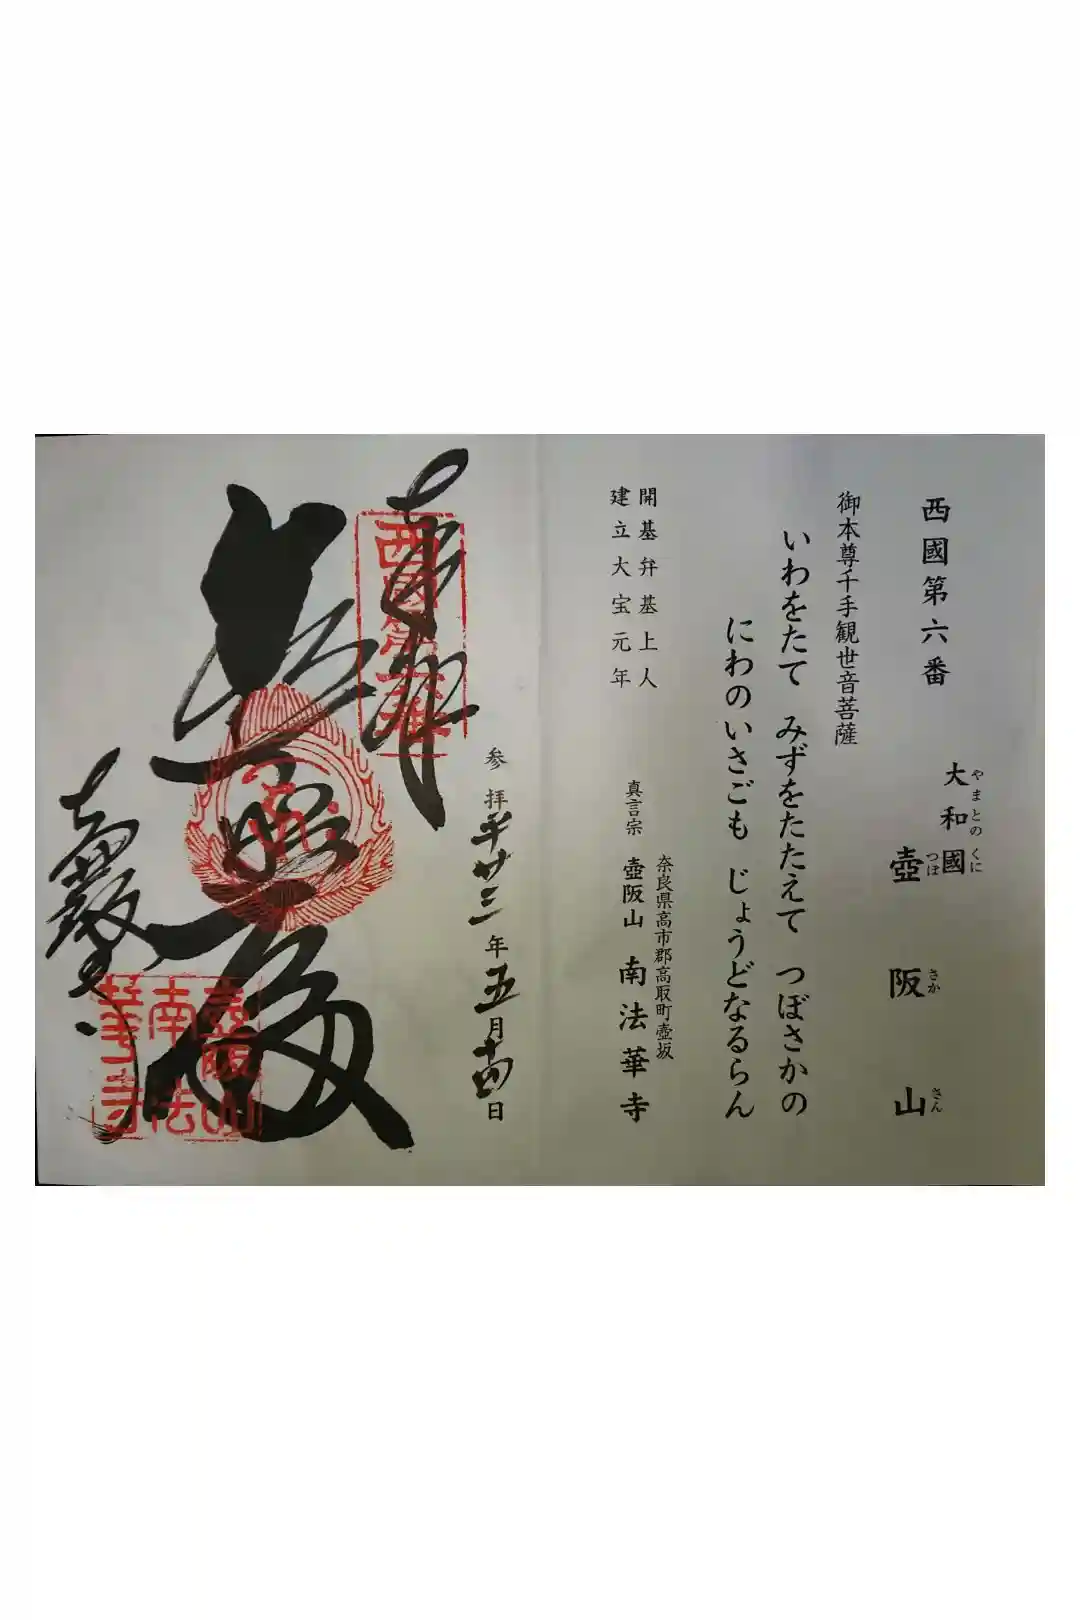 西國第六番
大和國
やまとのくに
壺阪山
つぼさかさん
御本尊千手観世音菩薩
いわをたて みずをたたえて つぼさかの
にわのいさごも じょうどなるらん
開基弁基上人
建立大宝元年
奈良県高市郡高取町壺坂
真言宗 壺阪山 南法華寺
参拝平廿三年五月十四日
奉拝
西國第六番
普照殿
南法華寺
壺阪山
南法
華寺